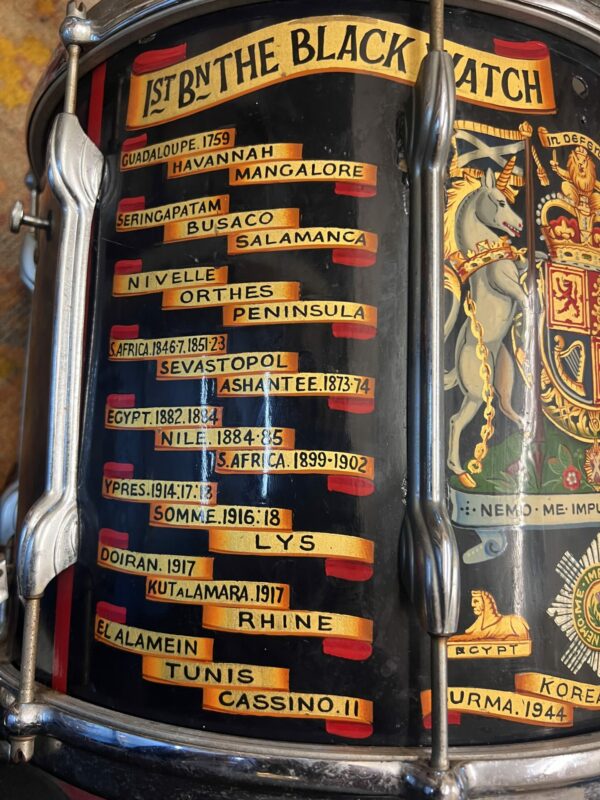 1ST BN THE BLACK WATCH
GUADALOUPE.1759
HAVANNAH
MANGALORE
SERINGAPATAM
BUSACO
SALAMANCA
NIVELLE
ORTHES
PENINSULA
S.AFRICA.1846·7.1851·2·3
SEVASTOPOL
ASHANTEE.1873·74
EGYPT.1882.1884
NILE.1884·85
S.AFRICA.1899-1902
YPRES.1914:17:18
SOMME.1916:18
LYS
DOIRAN.1917
KUT AL AMARA.1917
RHINE
EL ALAMEIN
TUNIS
CASSINO.II
IN DEFEN
NEMO·ME·IMPU
EGYPT
NEMO·ME·IM
KOREA
URMA.1944